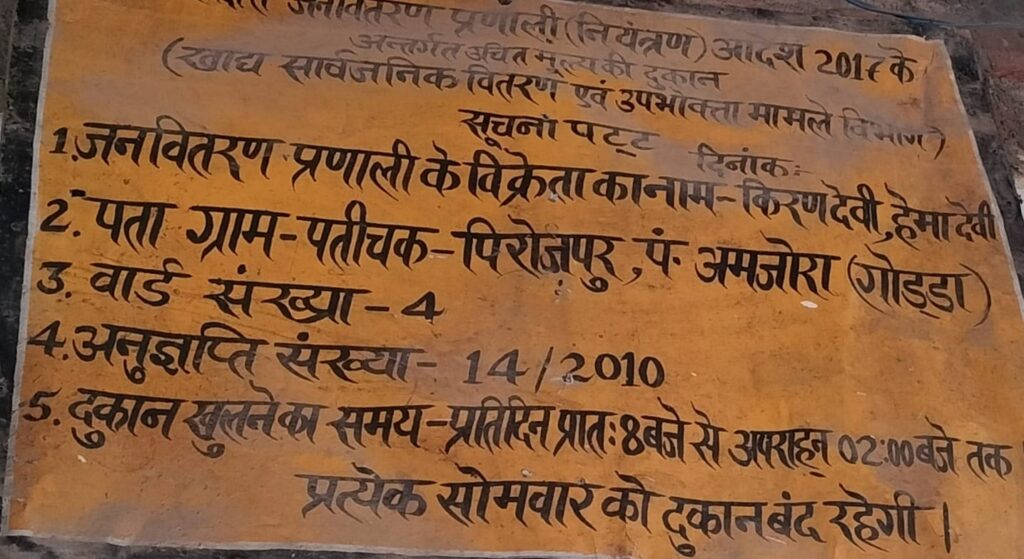 जनवितरण प्रणाली (नियंत्रण) आदेश 2017 के
अन्तर्गत उचित मूल्य की दुकान
(खाद्य सार्वजनिक वितरण एवं उपभोक्ता मामले विभाग)
सूचना पट्ट दिनांक:-
1. जनवितरण प्रणाली के विक्रेता का नाम - किरण देवी, हेमा देवी
2. पता ग्राम - पतीचक - पिरोजपुर, पं. अमजोरा (गोड्डा)
3. वार्ड संख्या - 4
4. अनुज्ञप्ति संख्या - 14/2010
5. दुकान खुलने का समय - प्रतिदिन प्रात: 8 बजे से अपराह्न 02:00 बजे तक
प्रत्येक सोमवार को दुकान बंद रहेगी।